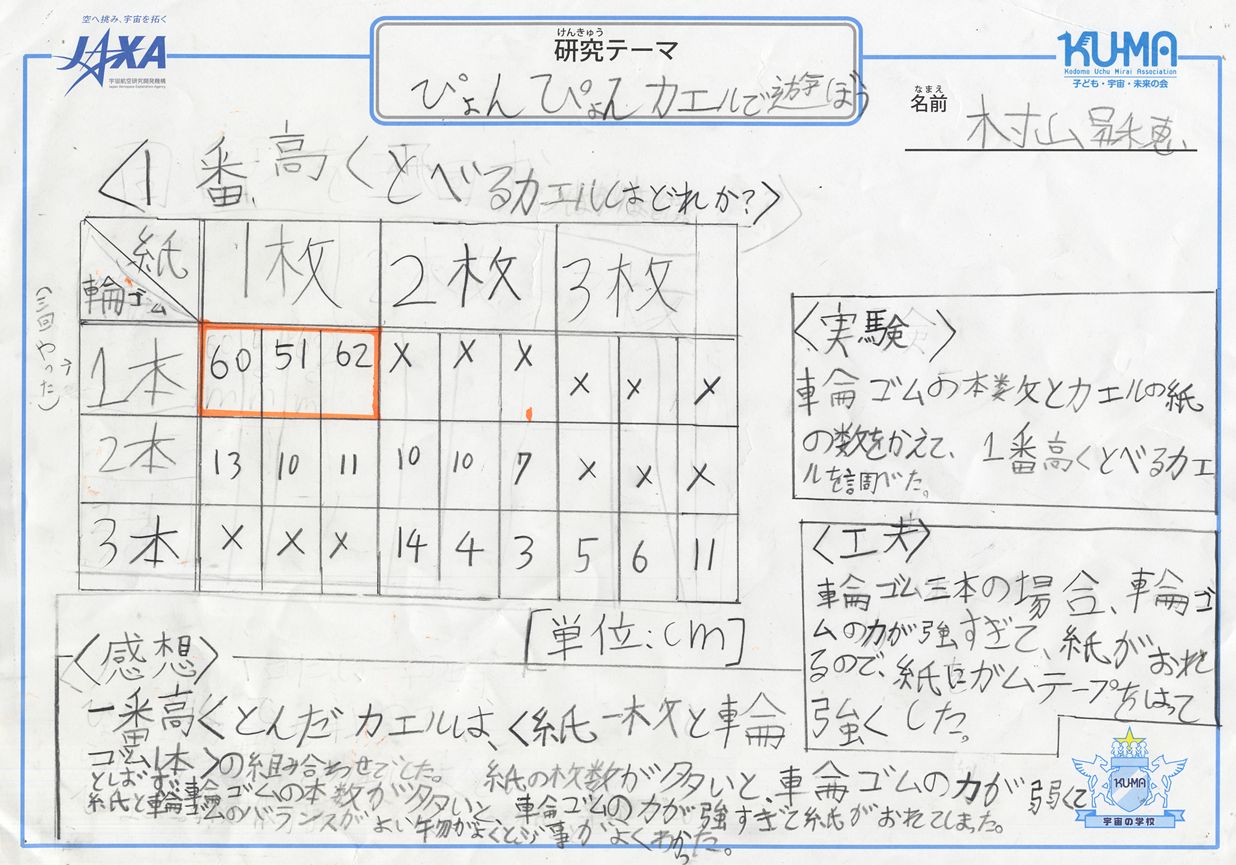 空へ挑み、宇宙を拓く
JAXA
宇宙航空研究開発機構
Japan Aerospace Exploration Agency
けんきゅう
研究テーマ
ぴょんぴょんカエルで遊ぼう
KU-MA
Kodomo Uchu Mirai Association
子ども・宇宙・未来の会
なまえ
名前
木村山
<1番高くとべるカエルはどれか?>
紙 1枚 2枚 3枚
輪ゴム
(三回やった)
1本 60 51 62 × × × × × ×
2本 13 10 11 10 10 7 × × ×
3本 × × × 14 4 3 5 6 11
[単位:cm]
<実験>
輪ゴムの本数とカエルの紙
の数をかえて、1番高くとべるカエ
ルを調べた。
<工夫>
輪ゴム三本の場合、輪ゴ
ムの力が強すぎて、紙がおれ
るので、紙にガムテープをはって
強くした。
<感想>
一番高くとんだカエルは、<紙一枚と輪
ゴム1本>の組み合わせでした。 紙の枚数が多いと、輪ゴムの力が弱くて
とばず、輪ゴムの本数が多いと、輪ゴムの力が強すぎて紙がおれてしまった。
紙と輪ゴムのバランスがよい物がよくとぶ事がよくわかった。
KU-MA
宇宙の学校